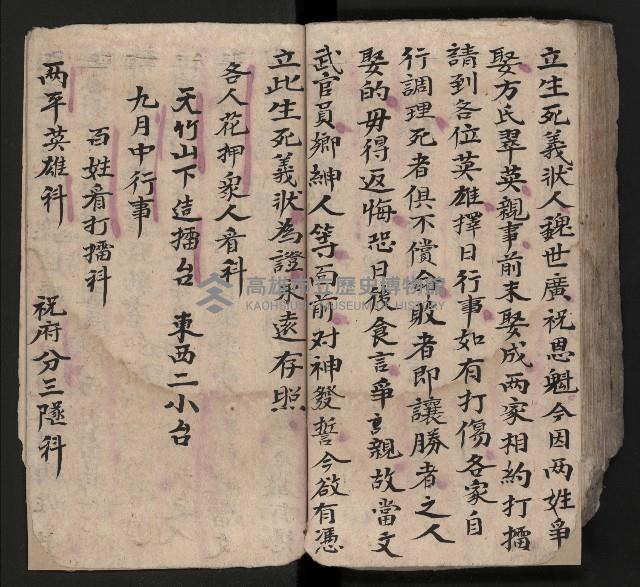 立生死義狀人魏世廣祝恩魁今因两姓爭
娶方氏翠英親事前未娶成两家相約打擂
請到各位英雄擇日行事如有打傷各家自
行調理死者俱不償命敗者即讓勝者之人
娶的毋得返悔恐日後食言爭親故當文
武官員鄉紳人等百前对神發誓今欲有憑
立此生死義狀為證遠存照
各人花押衆人看科
天竹山下造擂台 東西二小台
九月中行事
百姓看打擂科
两平英雄科 祝府分三隧科
高雄市立歷史博物館
KAOHSIUNG MUSEUM OF HISTORY